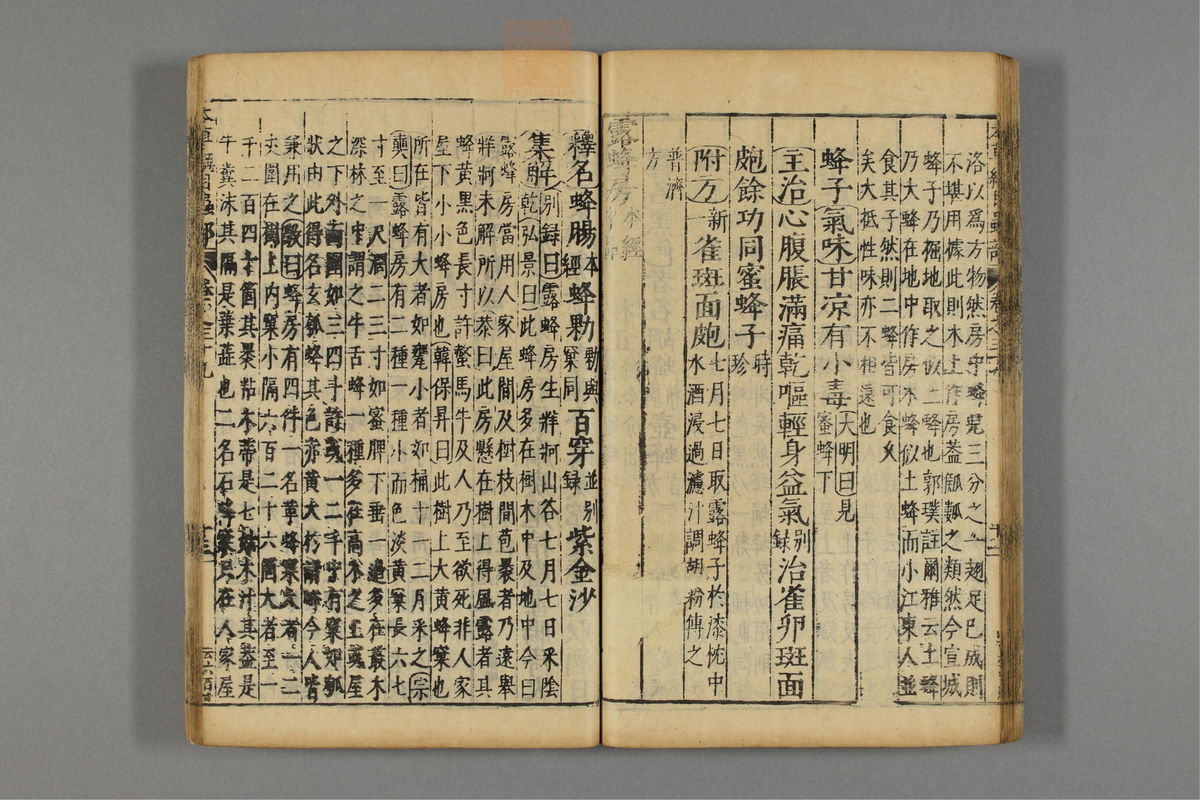 洛以爲方物然房中蜂蛹三分之一翅足已成則
不堪用據此則木上作房蓋瓠瓤之類然今宣城
蜂子乃掘地取之似土蜂也郭璞註爾雅云土蜂
乃大蜂在地中作房木蜂似土蜂而小江東人並
食其子然則二蜂皆可食久
矣大抵性味亦不相遠也
蜂子氣味甘凉有小毒大明曰見
蜜蜂下
主治心腹脹滿痛乾嘔輕身益氣别
録治雀卵斑面
皰餘功同蜜蜂子時
珍
附方新
一雀斑面皰七月七日取露蜂子於漆怶中
水酒浸過濾汁調胡粉傅之
普濟
方
露蜂房本經
釋名蜂腸本
經蜂𠡠𠡠與
窠同百穿並别
録紫金沙
集解别録曰露蜂房生牂牁山谷七月七日采陰
乾弘景曰此蜂房多在樹木中及地中今曰
露蜂房當用人家屋間及樹枝間苞裹者乃遠舉
牂牁未解所以恭曰此房懸在樹上得風露者其
蜂黄黑色長寸許螫馬牛及人乃至欲死非人家
屋下小小蜂房也韓保昇曰此樹上大黄蜂窠也
所在皆有大者如甕小者如桶十一二月采之宗
奭曰露蜂房有二種一種小而色淡黄窠長六七
寸至一尺濶二三寸如蜜脾下垂一邊多在叢木
深林之中謂之牛舌蜂一種多在高木之上或屋
之下外面圍如三四斗許或一二斗中有窠如瓠
狀由此得名玄瓠蜂其色赤黄大於諸蜂今人皆
兼用之斅曰蜂房有四件一名革蜂窠大者一二
丈圍在樹上内窠小隔六百二十六箇大者至一
千二百四十箇其裹粘木蒂是七姑木汁其蓋是
牛糞沫其隔是葉蕋也二名石蜂窠只在人家屋